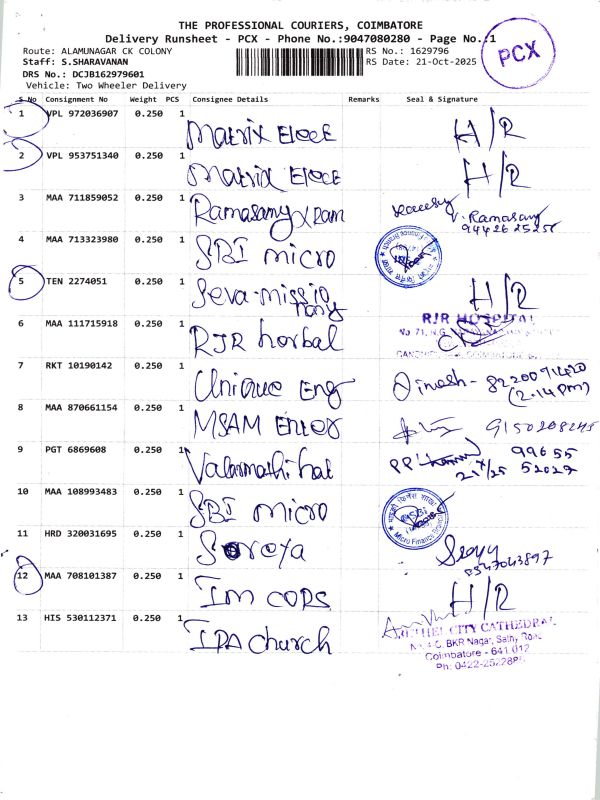 THE PROFESSIONAL COURIERS, COIMBATORE
Delivery Runsheet - PCX - Phone No.:9047080280 - Page No.:1
PCX
Route: ALAMUNAGAR CK COLONY
RS No.: 1629796
Staff: S.SHARAVANAN
RS Date: 21-Oct-2025
DRS No.: DCJB162979601
Vehicle: Two Wheeler Delivery
S No Consignment No Weight PCS Consignee Details Remarks Seal & Signature
1 VPL 972036907 0.250 1 Matrix Elece H/R
2 VPL 953751340 0.250 1 Matrix Elece H/R
3 MAA 711859052 0.250 1 Ramasamy x Ram
V. Ramasamy
4 MAA 713323980 0.250 1 SBI micro
5 TEN 2274051 0.250 1 Seva missio H/R
nary
6 MAA 111715918 0.250 1 RJR horbal RJR HOSPITAL
7 RKT 10190142 0.250 1 Unique Eng Dinesh - 8220091420
(2.14 Pm)
8 MAA 870661154 0.250 1 MSAM Enter 9150208245
9 PGT 6869608 0.250 1 Valarmathi hat 99655
52027
10 MAA 108993483 0.250 1 SBI micro Micro Finance Branch
11 HRD 320031695 0.250 1 Soreya
12 MAA 708101387 0.250 1 Im CORS H/R
13 HIS 530112371 0.250 1 IPA church
BETHEL CITY CATHEDRAL
BKR Nagar, Sathy Road
Coimbatore - 641 012